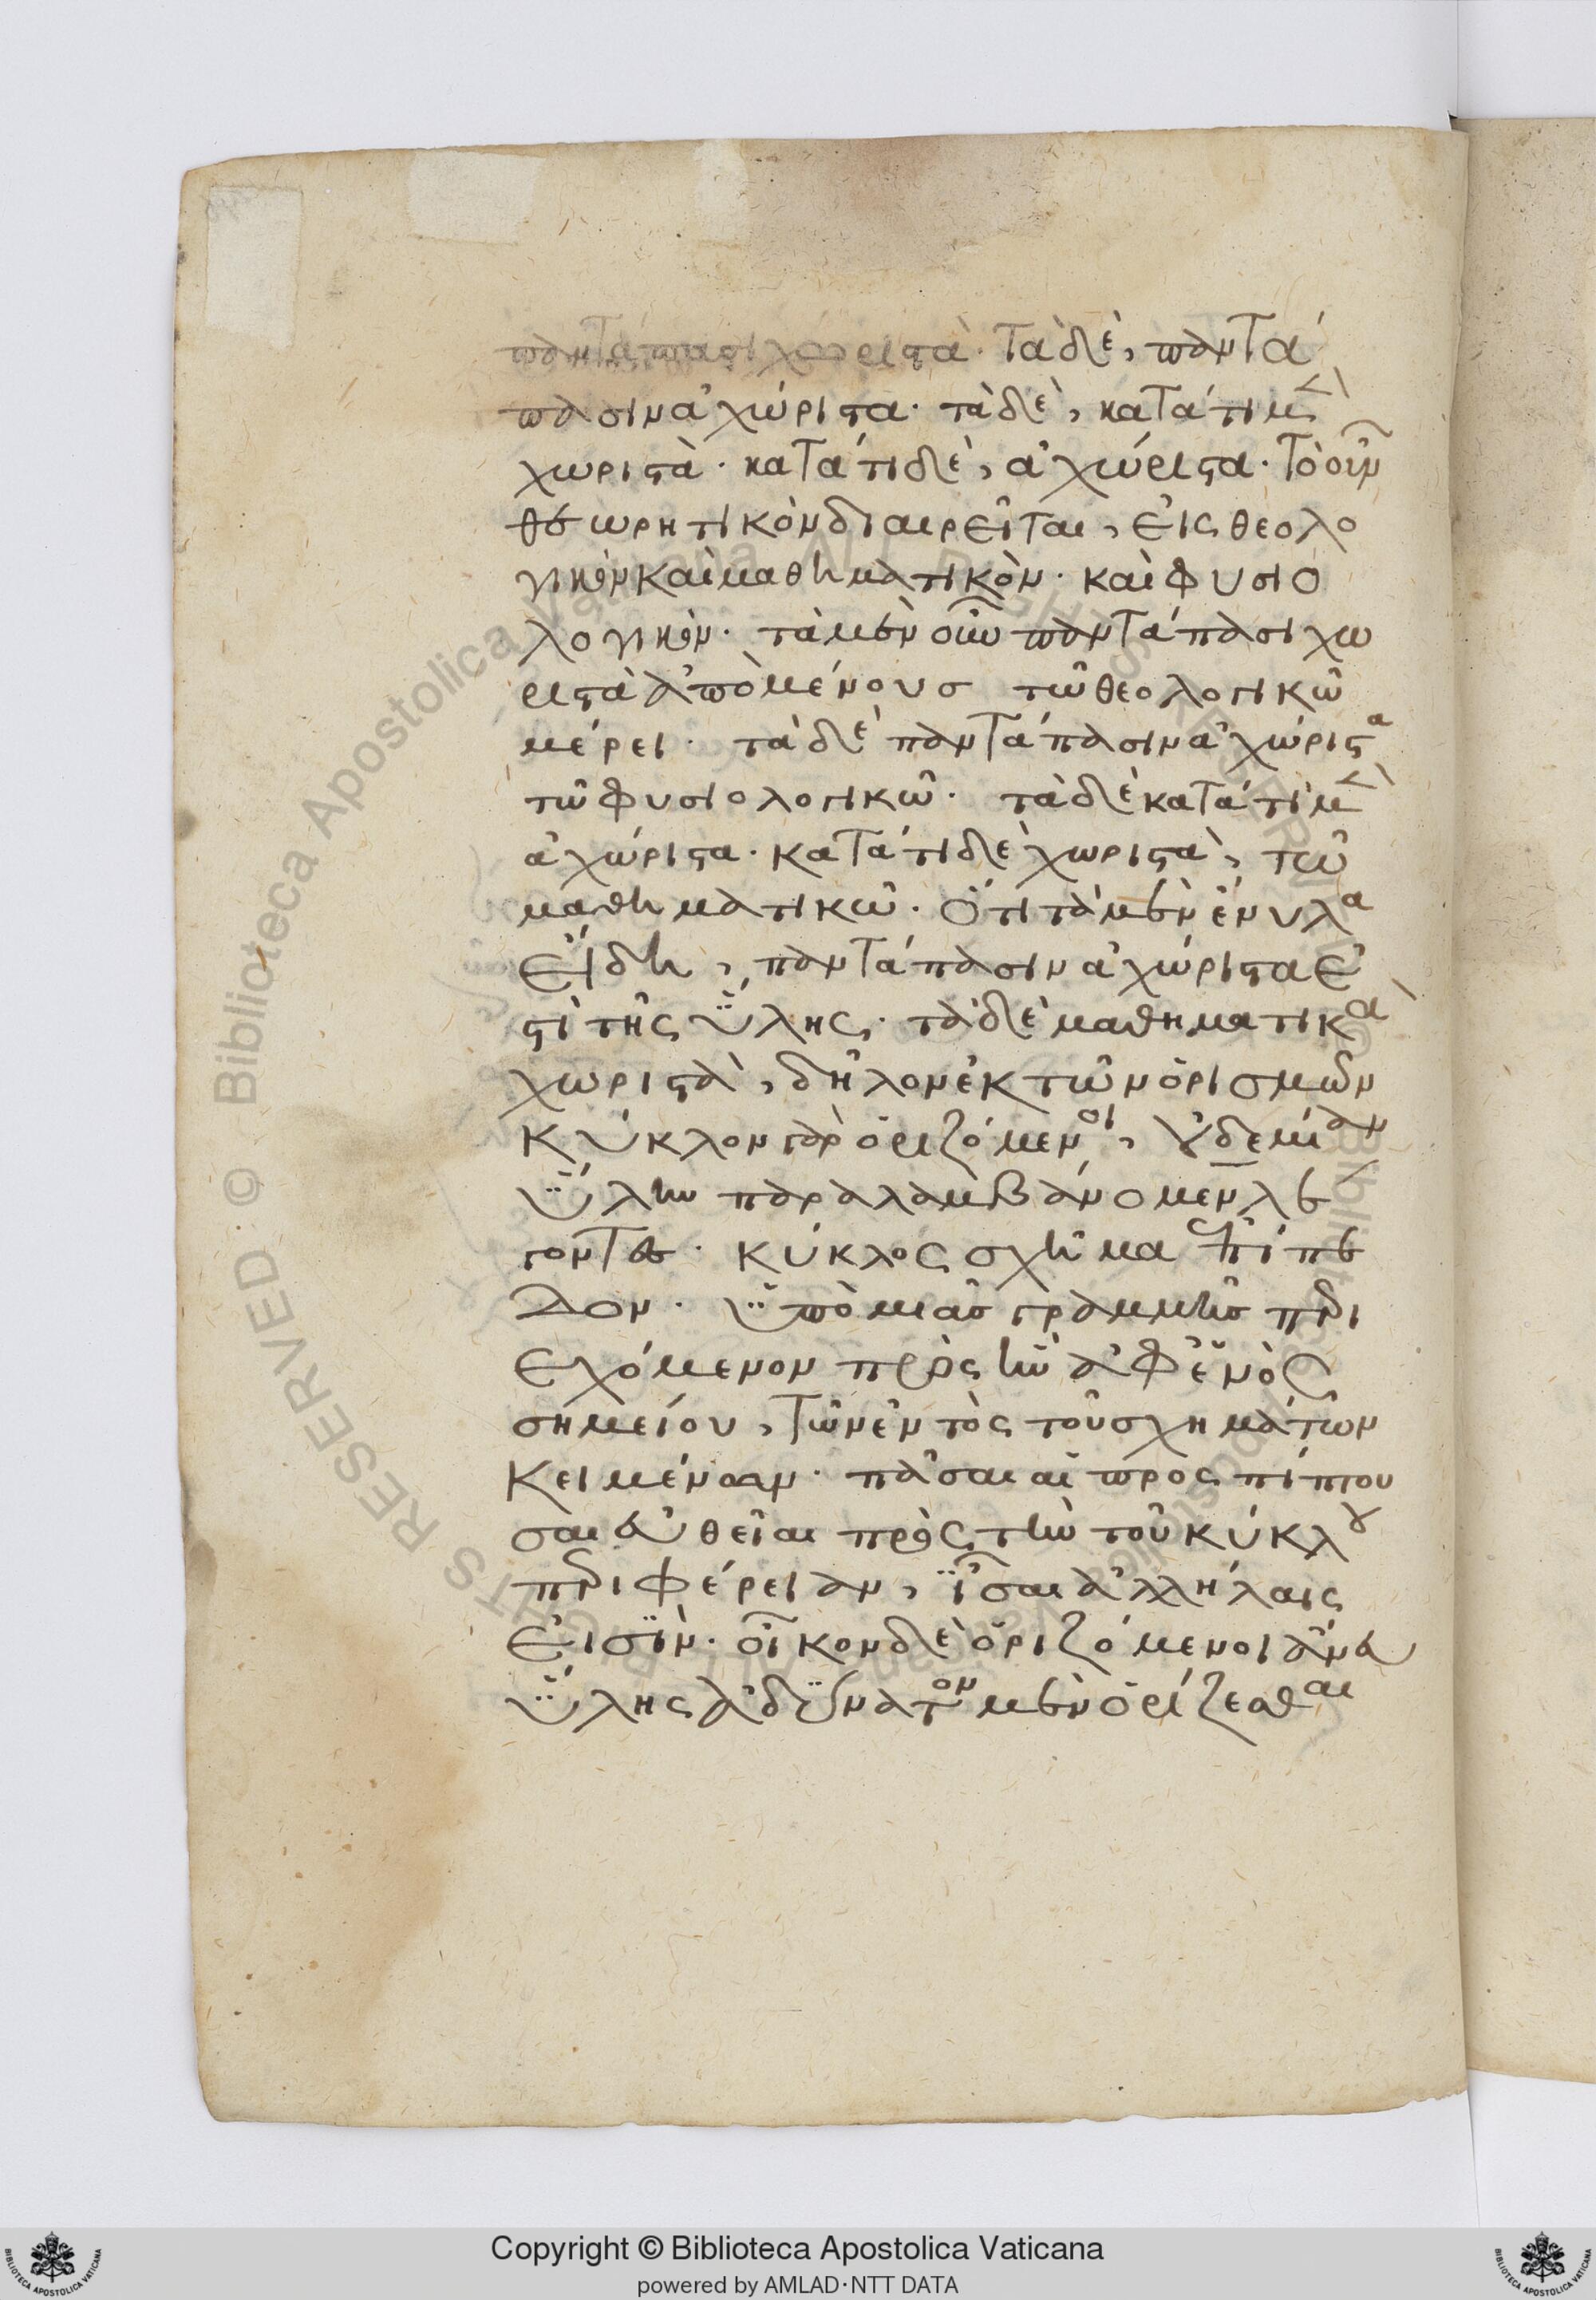 πανταπασι χωριστὰ· τὰ δὲ, παντά
πασιν ἀχώριστα· τὰ δὲ, κατά τι μὲν
χωριστὰ· κατά τι δὲ, ἀχώριστα· τὸ οὖν
θεωρητικὸν διαιρεῖται, εἰς θεολο
γικὸν καὶ μαθηματικὸν· καὶ φυσιο
λογικὸν· τὰ μὲν οὖν παντάπασι χω
ριστὰ ἀπομένουσ τῶ θεολογικῶ
μέρει· τὰ δὲ παντάπασιν ἀχώριστα
τῶ φυσιολογικῶ· τὰ δὲ κατά τι μὲν
ἀχώριστα· κατά τι δὲ χωριστὰ, τῶ
μαθηματικῶ· ὅτι τὰ μὲν ἔνυλα
εἴδη, παντάπασιν ἀχώριστα ἐ
στὶ τῆς ὕλης· τὰ δὲ μαθηματικὰ
χωριστὰ, δῆλον ἐκ τῶν ὁρισμῶν
κύκλον γὰρ ὁριζόμενοι, οὐδεμίαν
ὕλην παραλαμβάνομεν λέ
γοντες· κύκλος σχῆμα ἐπίπε
δον· ὑπὸ μιᾶς γραμμῆς περι
εχόμενον πρὸς ἣν ἀφ' ἑνὸς
σημείου, τῶν ἐντὸς τοῦ σχημάτων
κειμένων· πᾶσαι αἱ προσπίπτου
σαι εὐθεῖαι πρὸς τὴν τοῦ κύκλου
περιφέρειαν, ἴσαι ἀλλήλαις
εἰσὶν· οἶκον δὲ ὁριζόμενοι ἄνευ
ὕλης ἀδύνατον μὲν ὁρίζεσθαι
Copyright © Biblioteca Apostolica Vaticana
powered by AMLAD·NTT DATA